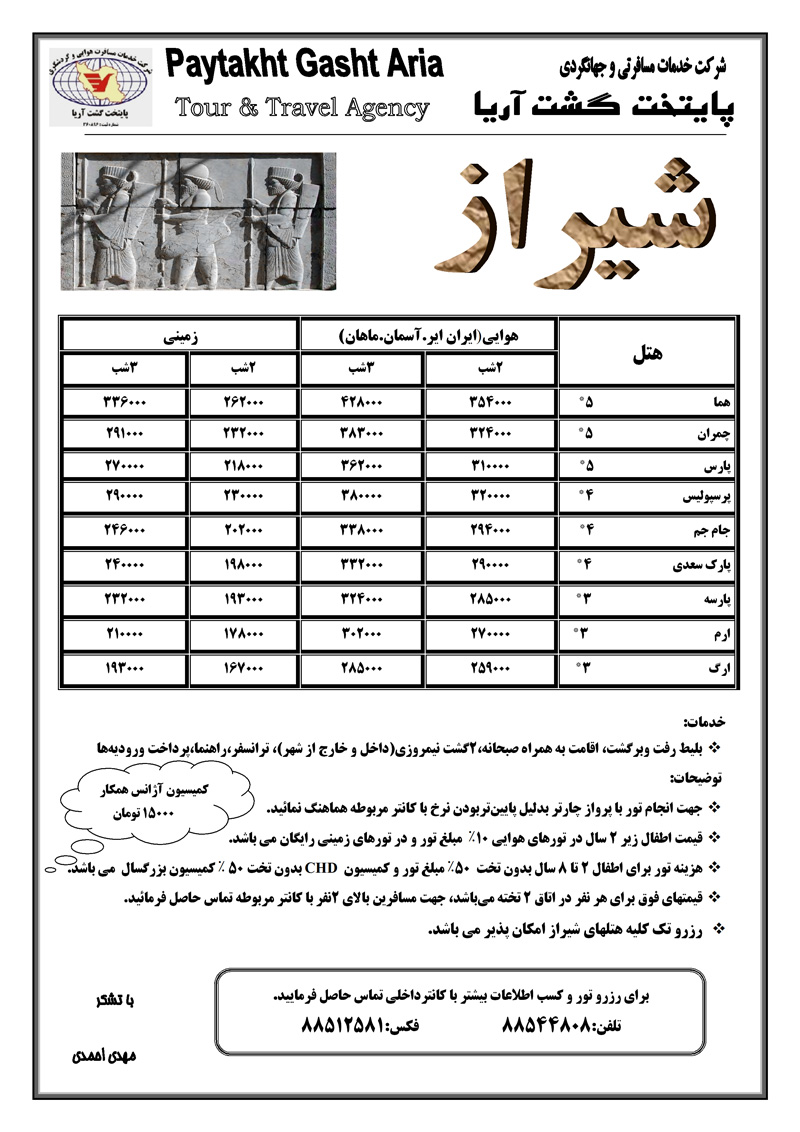 شرکت خدمات مسافرت هوایی و گردشگری
پایتخت گشت آریا
Paytakht Gasht Aria
Tour & Travel Agency
شرکت خدمات مسافرتی و جهانگردی
پایتخت گشت آریا
شیراز
هتل هوایی(ایران ایر.آسمان.ماهان) زمینی
۲شب ۳شب ۲شب ۳شب
هما ۵* ۳۵۴۰۰۰ ۴۲۸۰۰۰ ۲۶۲۰۰۰ ۳۳۶۰۰۰
چمران ۵* ۳۲۴۰۰۰ ۳۸۳۰۰۰ ۲۳۲۰۰۰ ۲۹۱۰۰۰
پارس ۵* ۳۱۰۰۰۰ ۳۶۲۰۰۰ ۲۱۸۰۰۰ ۲۷۰۰۰۰
پرسپولیس ۴* ۳۲۰۰۰۰ ۳۸۰۰۰۰ ۲۳۰۰۰۰ ۲۹۰۰۰۰
جام جم ۴* ۲۹۴۰۰۰ ۳۳۸۰۰۰ ۲۰۲۰۰۰ ۲۴۶۰۰۰
پارک سعدی ۴* ۲۹۰۰۰۰ ۳۳۲۰۰۰ ۱۹۸۰۰۰ ۲۴۰۰۰۰
پارسه ۳* ۲۸۵۰۰۰ ۳۲۴۰۰۰ ۱۹۳۰۰۰ ۲۳۲۰۰۰
ارم ۳* ۲۷۰۰۰۰ ۳۰۲۰۰۰ ۱۷۸۰۰۰ ۲۱۰۰۰۰
ارگ ۳* ۲۵۹۰۰۰ ۲۸۵۰۰۰ ۱۶۷۰۰۰ ۱۹۳۰۰۰
خدمات:
❖ بلیط رفت وبرگشت، اقامت به همراه صبحانه،۲گشت نیمروزی(داخل و خارج از شهر)، ترانسفر،راهنما،پرداخت ورودیه‌ها
توضیحات:
کمیسیون آژانس همکار
۱۵۰۰۰ تومان
❖ جهت انجام تور با پرواز چارتر بدلیل پایین‌تربودن نرخ با کانتر مربوطه هماهنگ نمائید.
❖ قیمت اطفال زیر ۲ سال در تورهای هوایی ۱۰٪ مبلغ تور و در تورهای زمینی رایگان می باشد.
❖ هزینه تور برای اطفال ۲ تا ۸ سال بدون تخت ۵۰٪ مبلغ تور و کمیسیون CHD بدون تخت ۵۰ ٪ کمیسیون بزرگسال می باشد.
❖ قیمتهای فوق برای هر نفر در اتاق ۲ تخته می‌باشد، جهت مسافرین بالای ۲نفر با کانتر مربوطه تماس حاصل فرمائید.
❖ رزرو تک کلیه هتلهای شیراز امکان پذیر می باشد.
برای رزرو تور و کسب اطلاعات بیشتر با کانترداخلی تماس حاصل فرمایید.
تلفن:۸۸۵۴۴۸۰۸ فکس:۸۸۵۱۲۵۸۱
با تشکر
مهدی احمدی